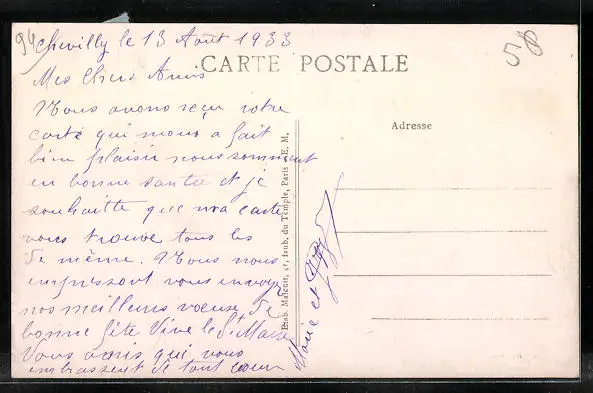 94
Chevilly le 13 Août 1933
58
Mes Chers Amis
CARTE POSTALE
Nous avons reçu votre
carte qui nous a fait
bien plaisir nous somment
en bonne santée et je
souhaitte que ma carte
vous trouve tous les
de même. Nous nous
empressont vous envoyer
nos meilleurs voeuse de
bonne fête Vive le St
Vous amis qui vous
embrassent de tout coeur
Marie et
Adresse
faub. du Temple, Paris E. M.